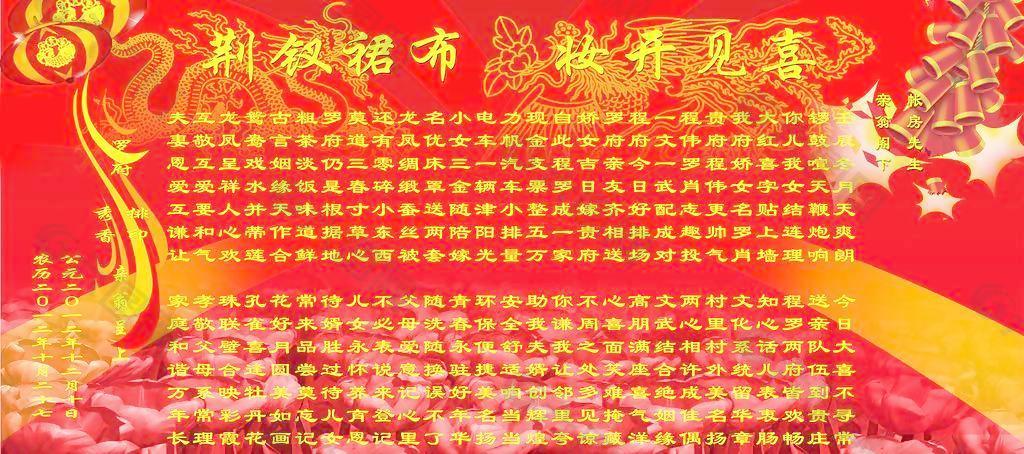 荆钗裙布 妆开见喜
帐房先生
亲翁阁下
壬辰冬月天爽朗
锣鼓喧天鞭炮响
你儿我女结连理
大红喜字贴上墙
我府娇女名罗肖
贵府程伟更帅气
程伟罗肖志趣投
一文一武配成对
程府今日好排场
罗府亲友齐相送
娇女吉日嫁贵府
自此程罗成一家
现金支票整五万
力帆汽车小排量
电车一辆津阳光
小女三金随陪嫁
名优床罩送两套
龙凤绸缎蚕丝被
还有零碎小东西
莫道三春寸草心
罗府仍是根据地
粗茶淡饭味道鲜
古言姻缘天作合
鸳鸯戏水并蒂莲
龙凤呈祥人心欢
互敬互爱要和气
夫妻恩爱互谦让
今日大喜不寻常
送亲队伍到贵庄
程罗两府皆欢畅
知心话儿表衷肠
文化系统留华章
村里村外美名扬
两心相许成佳偶
文武结合绝姻缘
高朋满座喜气洋
心喜面笑难掩藏
不周之处多见谅
你谦我让邻里夸
助我夫婿创辉煌
安全舒适响当当
环保便捷美名扬
青春永驻好年华
随洗随换误不了
父母爱意记心里
不必表说来登记
儿女永怀养育恩
待婿胜过待儿女
常来品尝莫忘记
花好月圆美如画
孔雀喜逢牡丹花
珠联璧合映彩霞
孝敬父母系常理
家庭和谐万年长
罗府
秀香
亲翁呈上
公元二〇一二年十二月十日
农历二〇一二年十月二十七